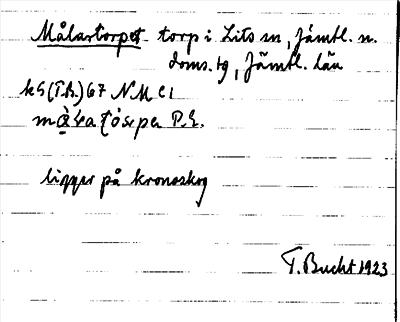 Målartorpet torp i Lits sn, Jämtl. n.
doms. tg, Jämtl. län
k5 (T.k.) 67 NM c1
ligger på kronoskog
T. Bucht 1923